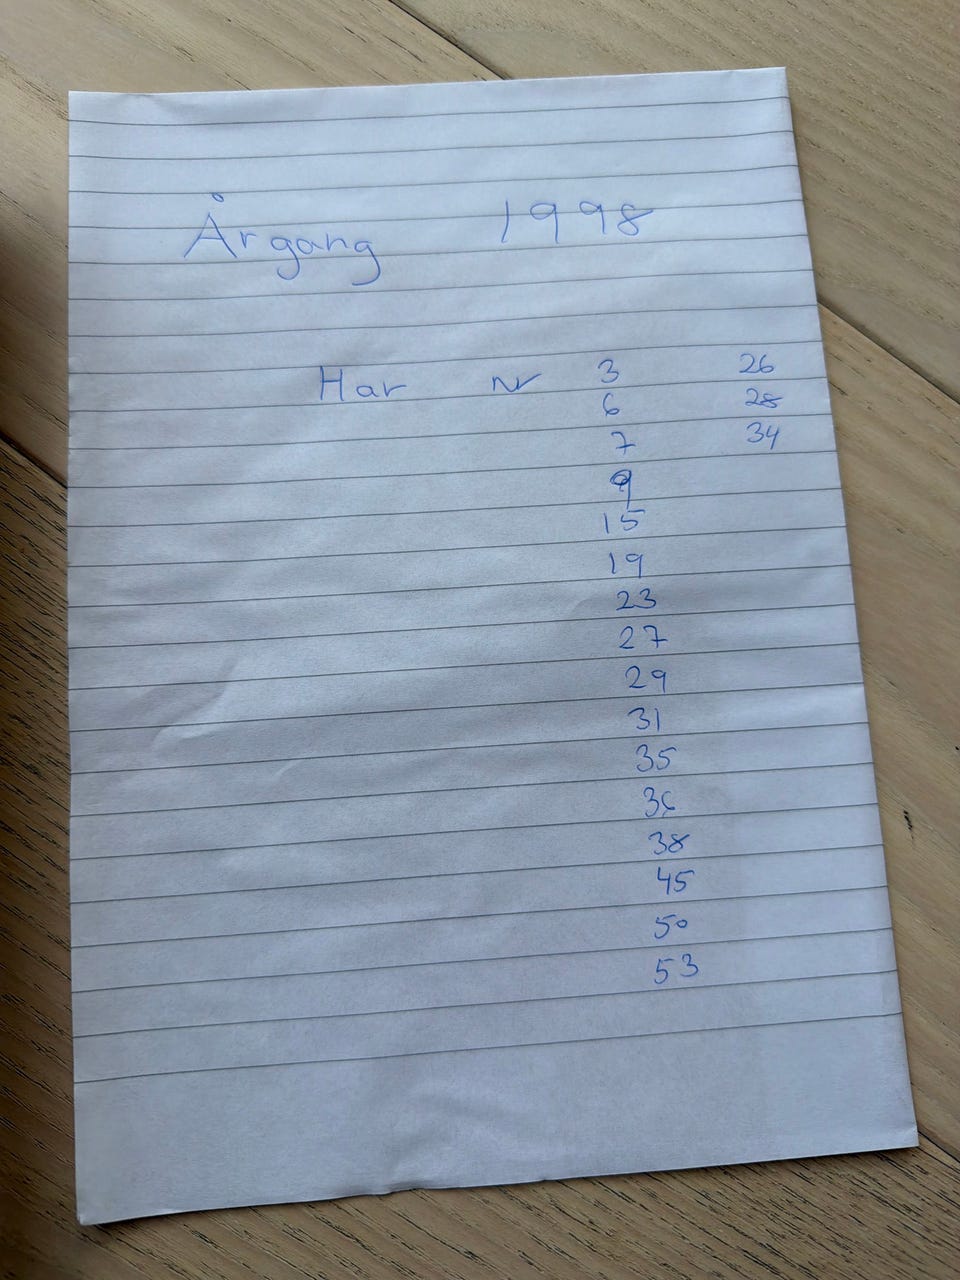 Årgang 1998
Har nr 3 26
6 28
7 34
9
15
19
23
27
29
31
35
36
38
45
50
53